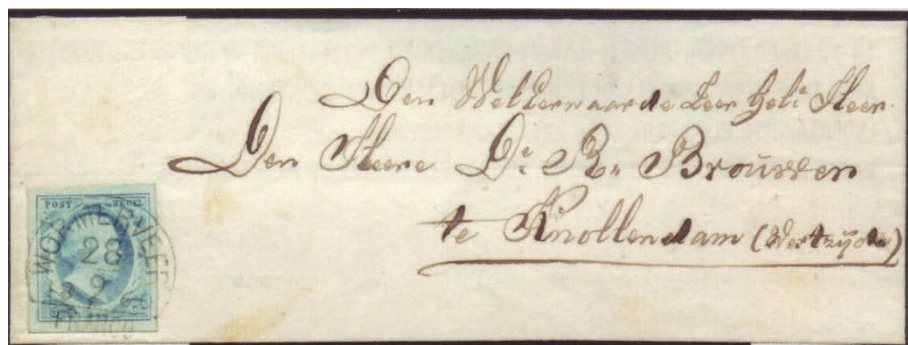 Den WelEerwaarde Zeer Gel:e Heer
Den Heere D:s R. Brouwer
te Knollendam (Westzijde)
POST ZEGEL
WORMERVEER
28
9
FRANCO